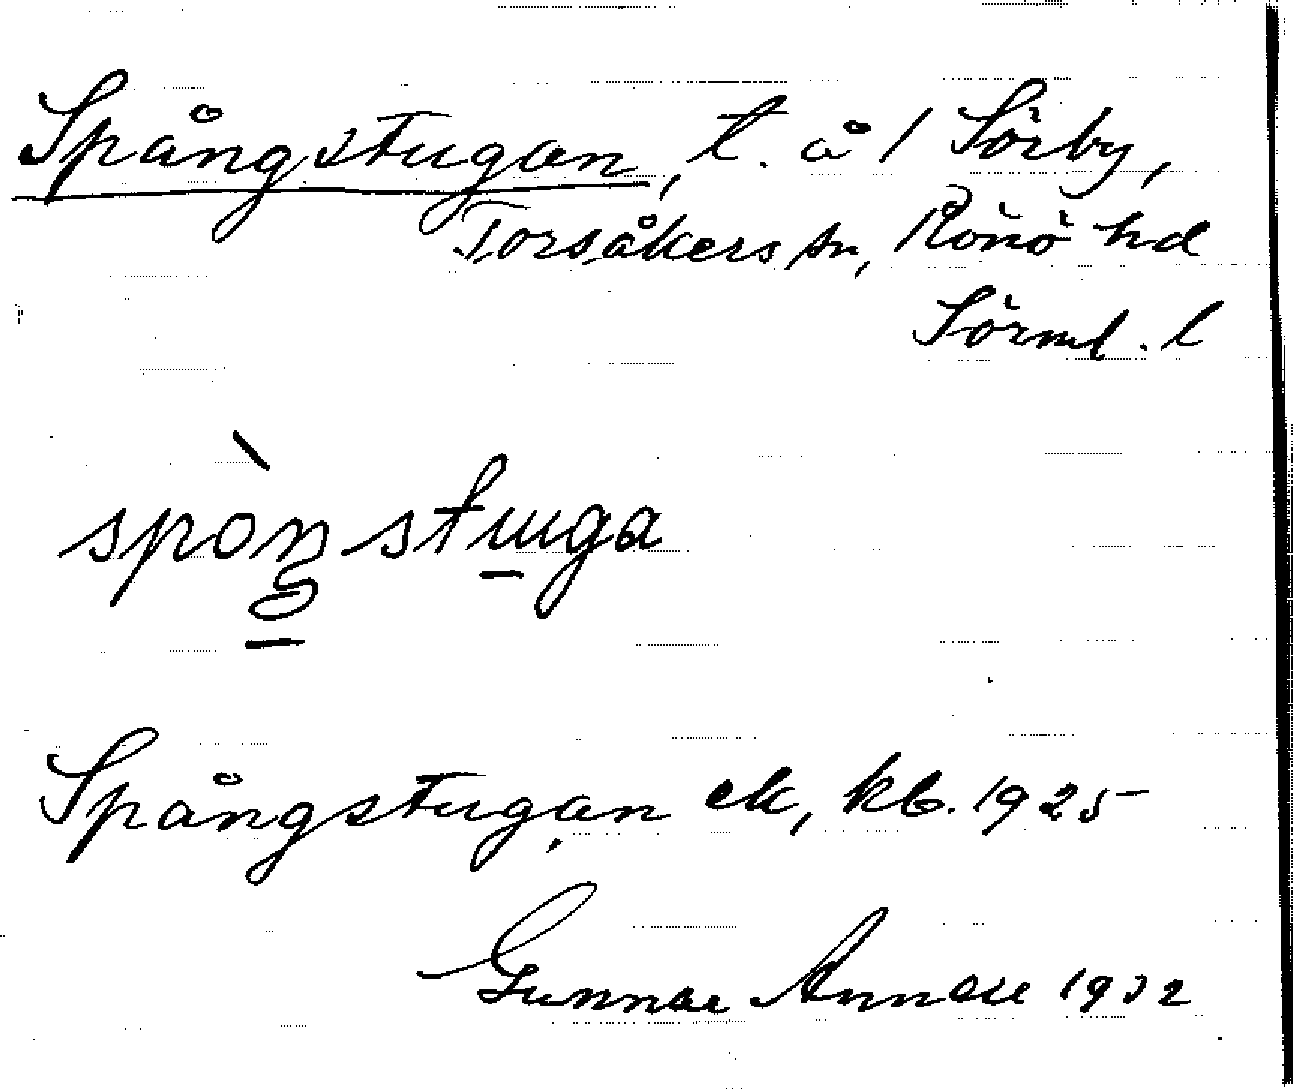 Spångstugan, t. å / Sörby,
Torsåkers sn, Rönö hd
Sörml. l
spòŋstuga
Spångstugan ek, kb. 1925
Gunnar 1932